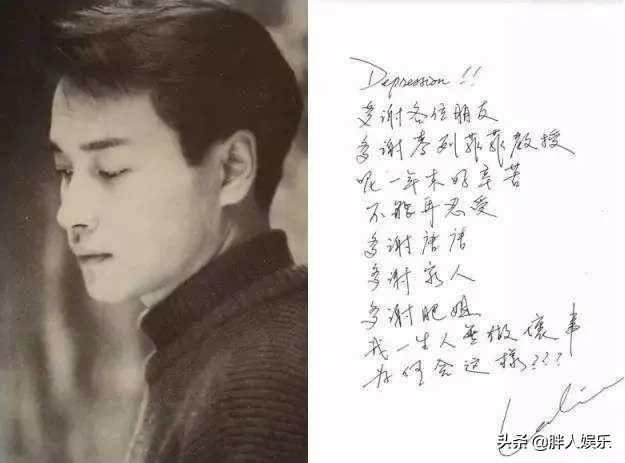 Depression!!
多谢各位朋友
多谢麦列菲菲教授
呢一年来好辛苦
不能再忍受
多谢唐唐
多谢家人
多谢肥姐
我一生人无做坏事
为何会这样???
Leslie
头条 @胖人娱乐